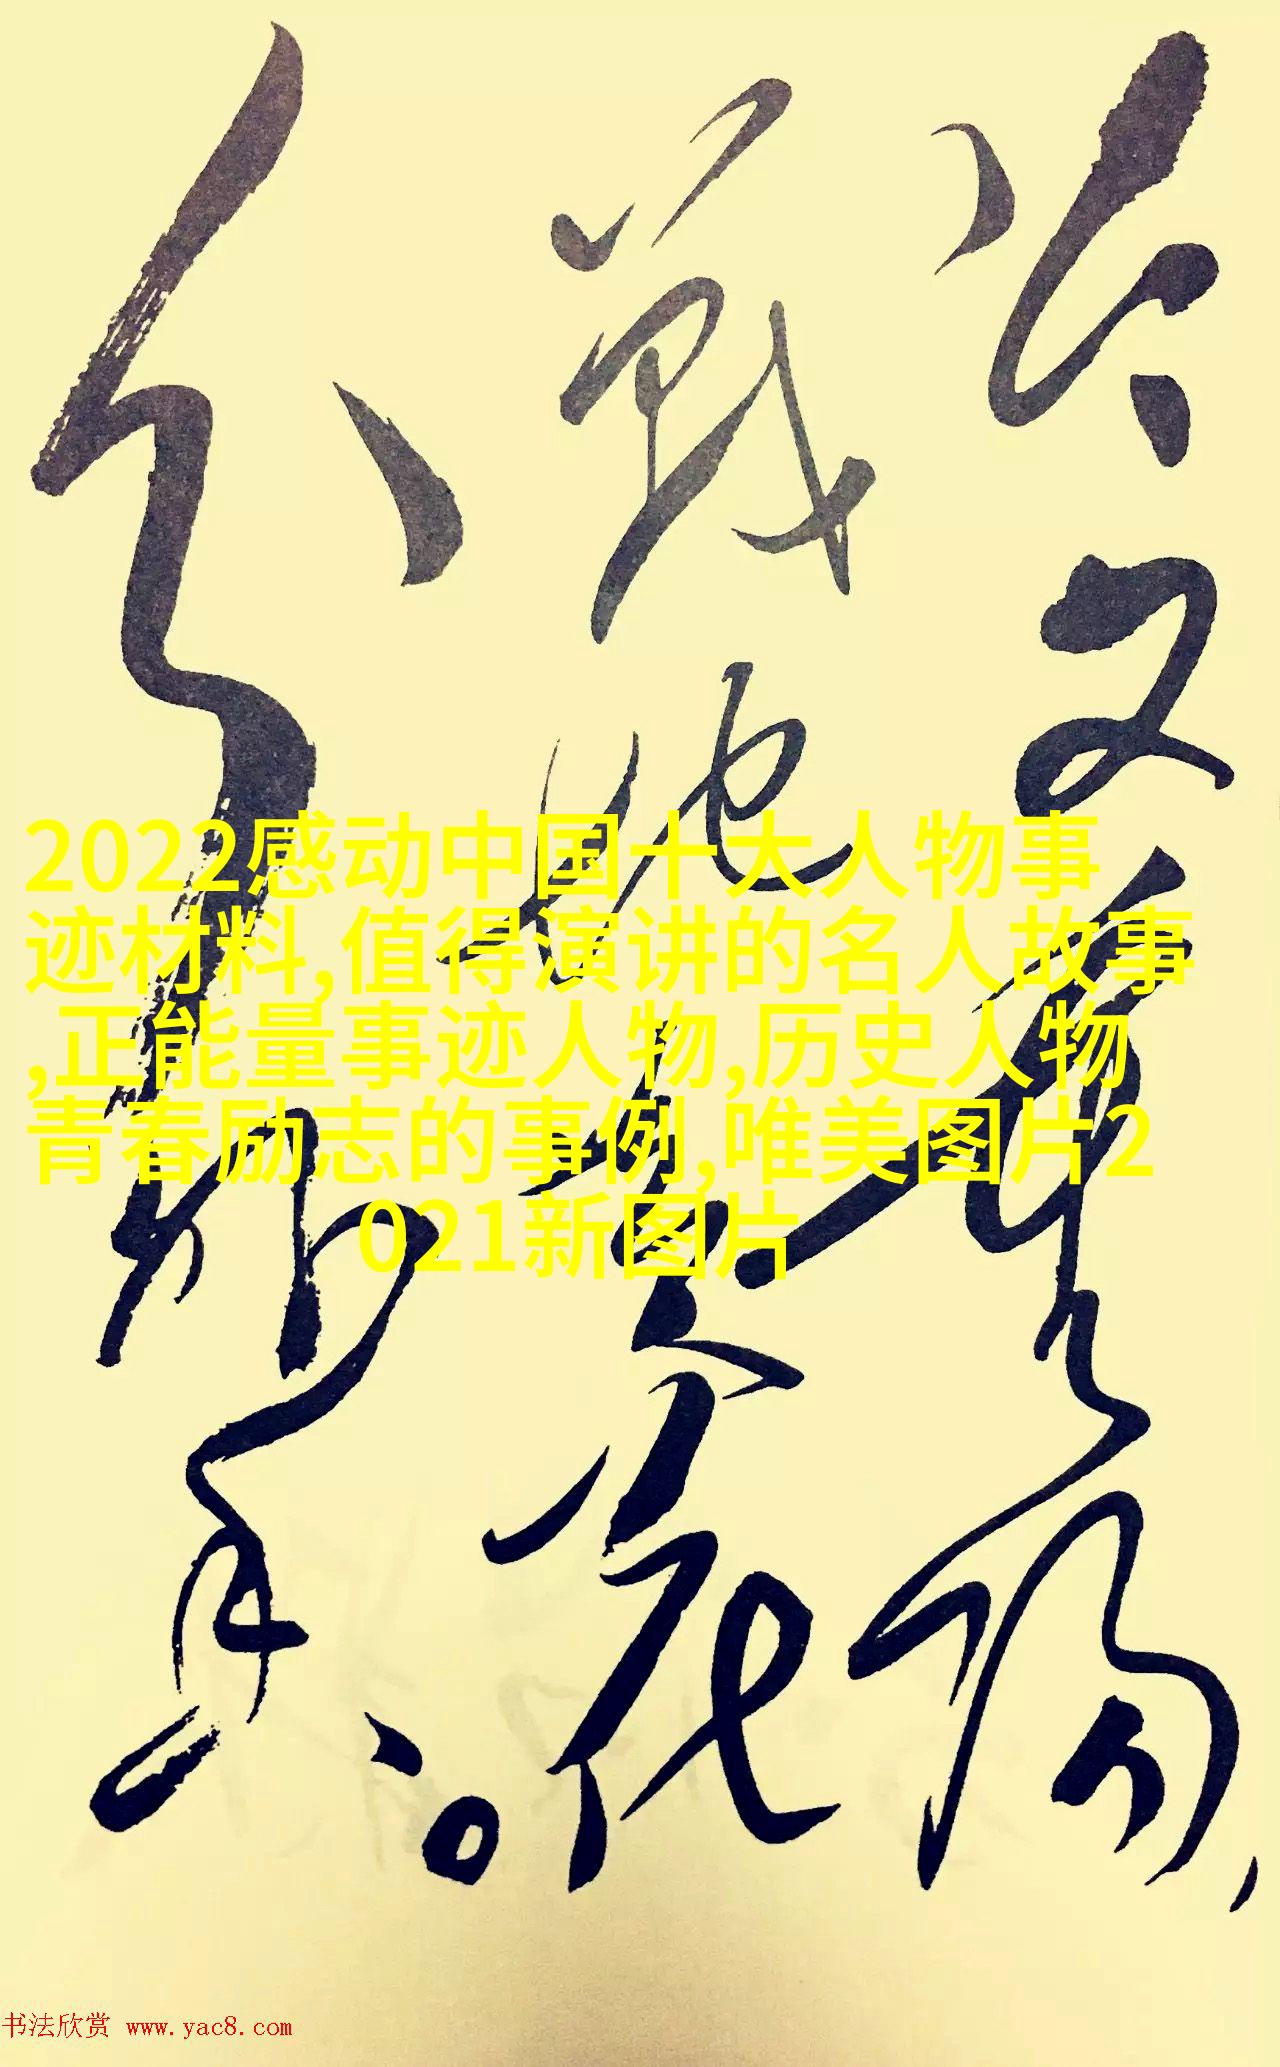 今又重陽,
戰地黃花
分外香。
2022感动中国十大人物事
迹材料,值得演讲的名人故事
,正能量事迹人物,历史人物
青春励志的事例,唯美图片2
021新图片
书法欣赏 www.yac8.com